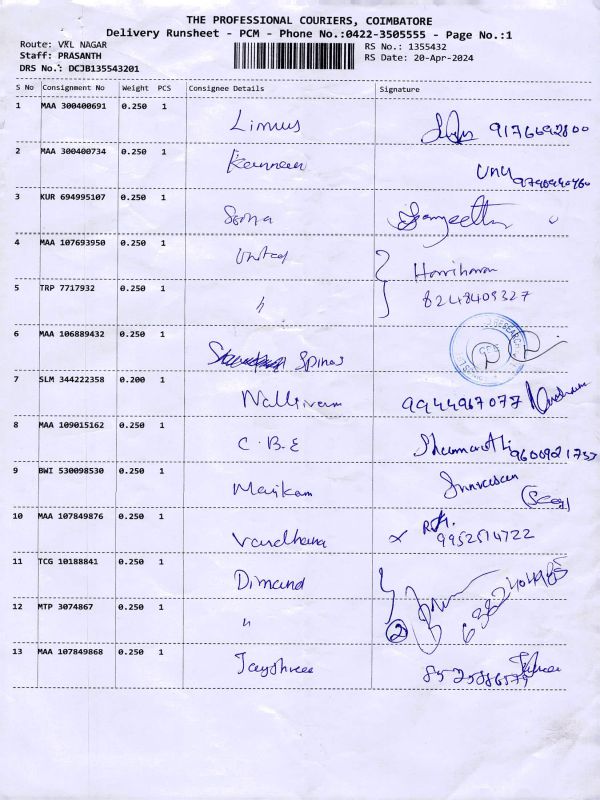 THE PROFESSIONAL COURIERS, COIMBATORE
Delivery Runsheet - PCM - Phone No.:0422-3505555 - Page No.:1
Route: VKL NAGAR
Staff: PRASANTH
DRS No.: DCJB135543201
RS No.: 1355432
RS Date: 20-Apr-2024
S No Consignment No Weight PCS Consignee Details Signature
1 MAA 300400691 0.250 1 Limus
2 MAA 300400734 0.250 1
3 KUR 694995107 0.250 1 Sona Sangeetha
4 MAA 107693950 0.250 1 United Harriharan
5 TRP 7717932 0.250 1 " 8248409327
6 MAA 106889432 0.250 1 Spinas
7 SLM 344222358 0.200 1 9944967077
8 MAA 109015162 0.250 1 C.B.E
9 BWI 530098530 0.250 1 Manikam (Seal)
10 MAA 107849876 0.250 1 Vandhana 9952514722
11 TCG 10188841 0.250 1 Dimand
12 MTP 3074867 0.250 1 " 2
13 MAA 107849868 0.250 1 Jayshree